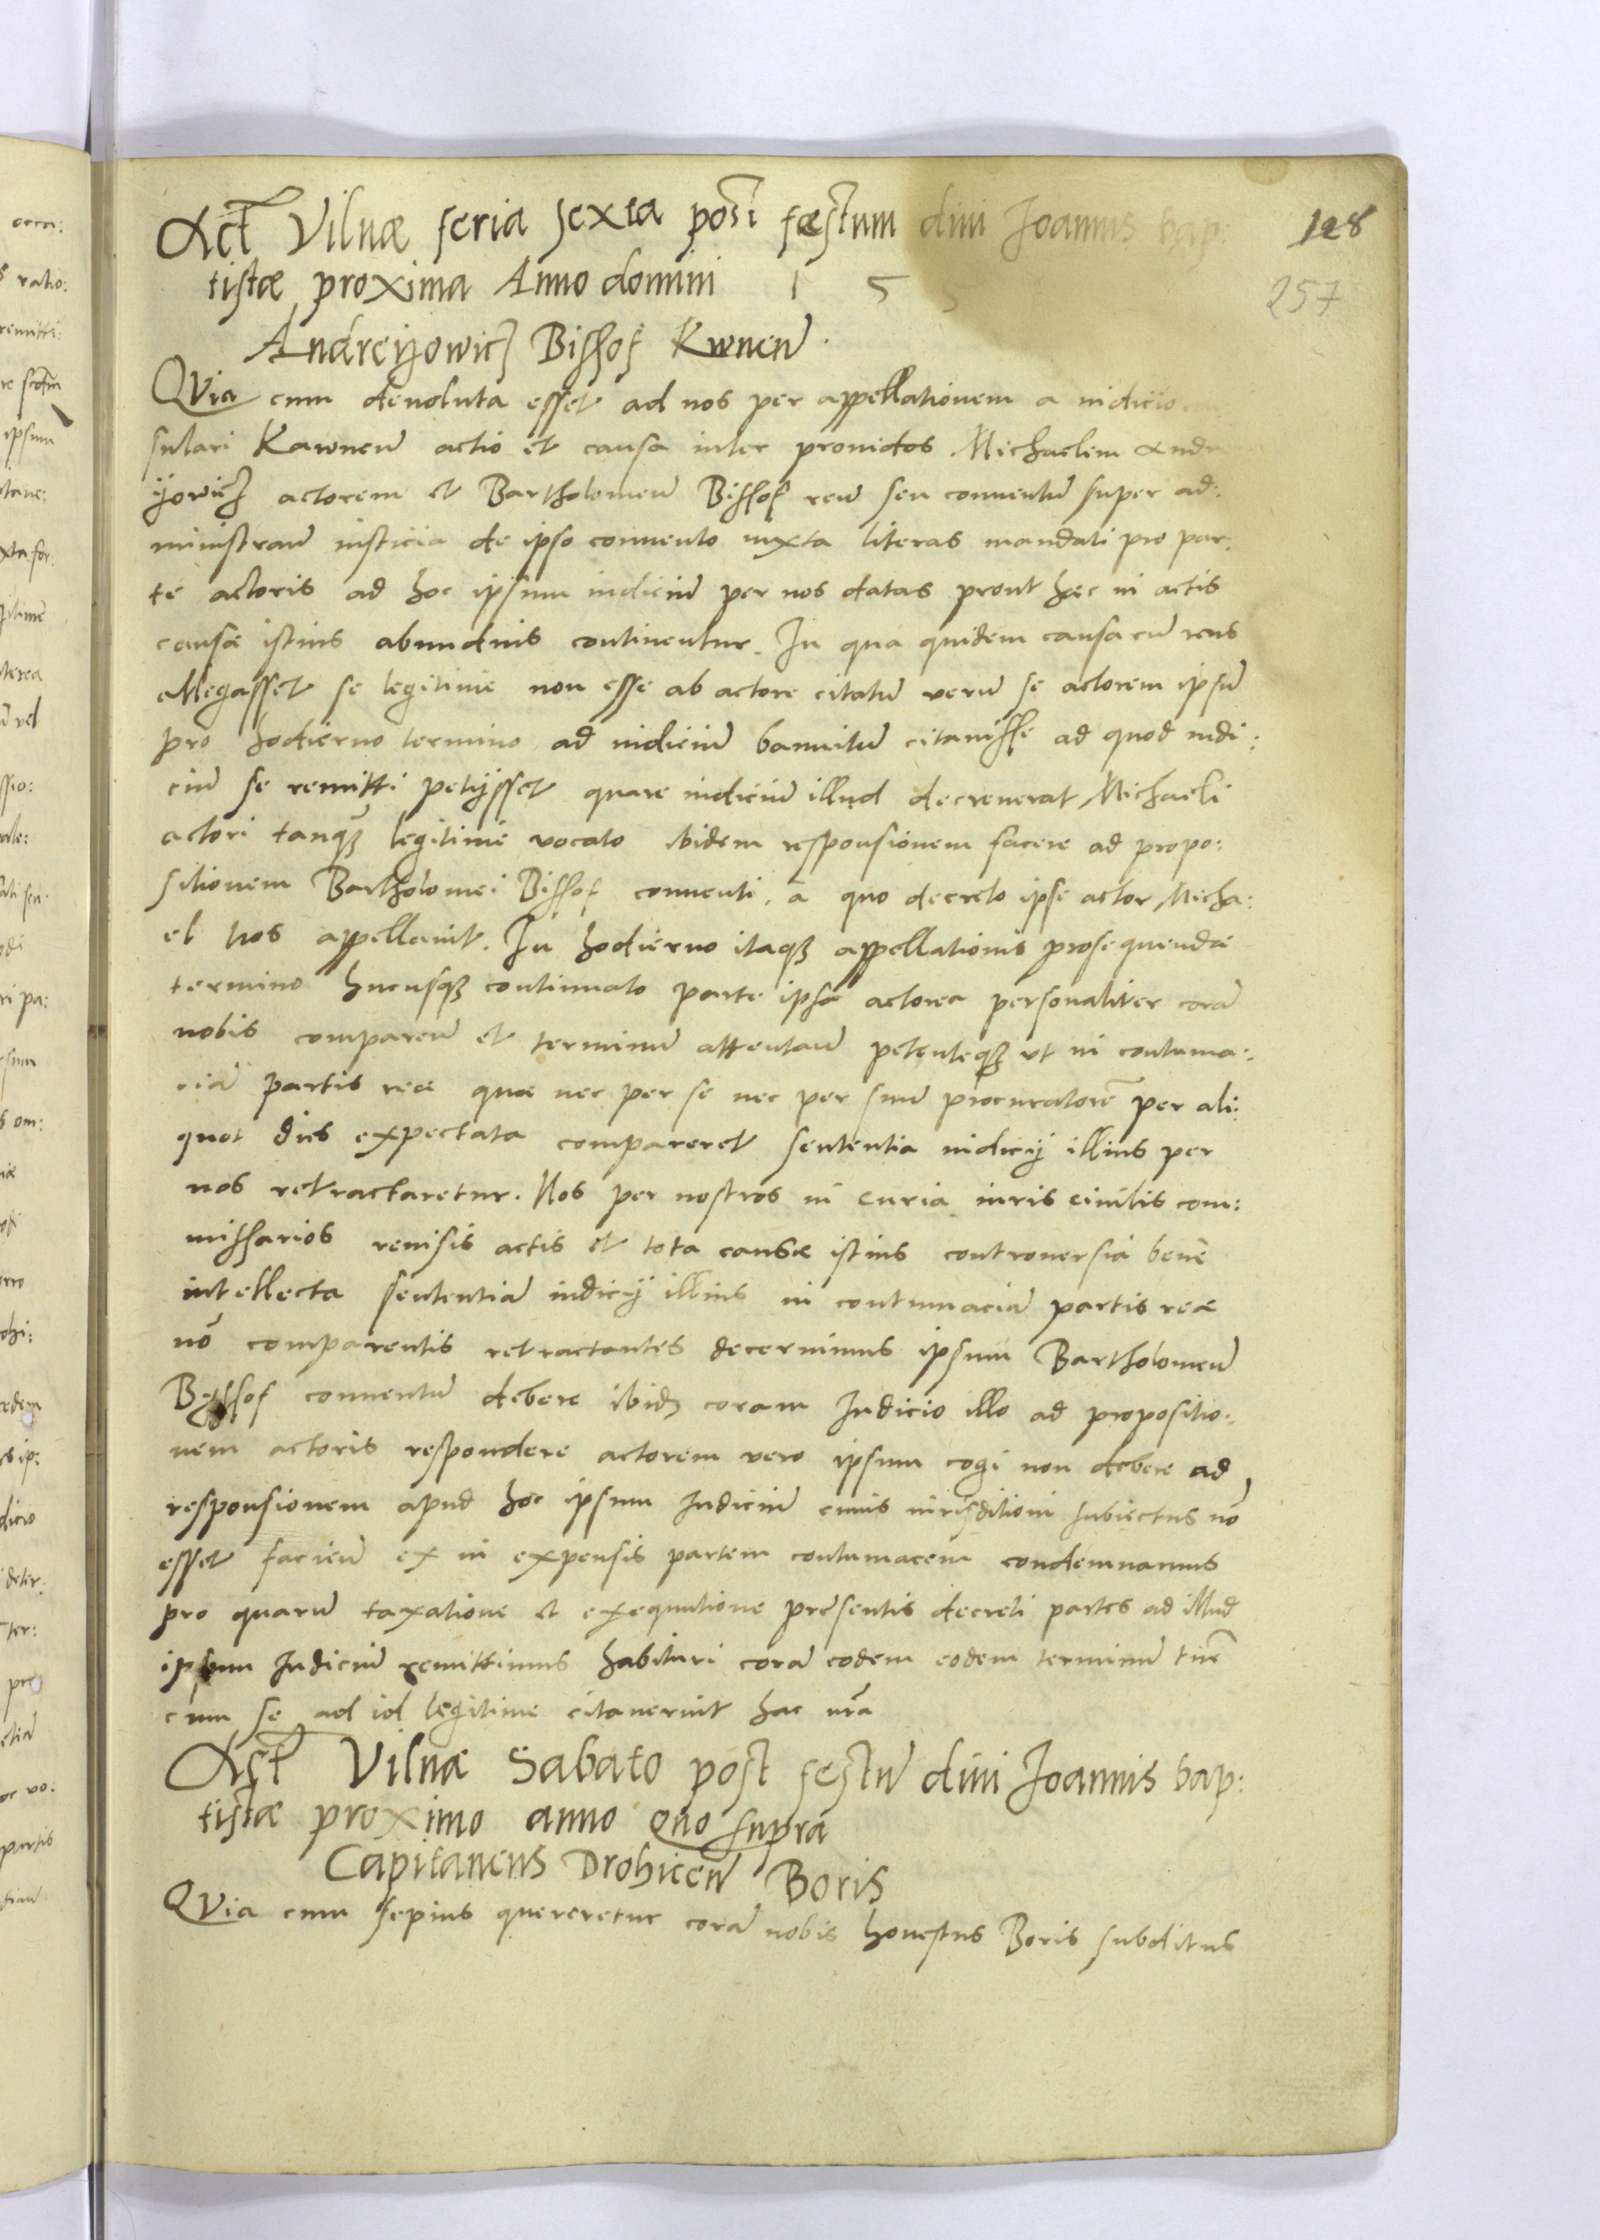 Act̃ Vilnæ feria sexta post fæstum diui Joannis bap:
tistæ proxima Anno domini 1 5 5
128
257
Andreyowicz Bissof Kwneñ.
QVia cum deuoluta esset ad nos per appellationem a iudicio
sulari Kawneñ actio et causa inter prouidos Michaelem Andr
ÿowicz actorem et Bartholomeũ Bissof reũ seu conuentũ super ad:
ministrañ iusticia de ipso conuento iuxta literas mandati pro par:
te actoris ad hoc ipsum iudiciũ per nos datas prout hæc in actis
causæ istius abundius continentur. In qua quidem causa cũ reus
allegasset se legitime non esse ab actore citatũ verũ se actorem ipsũ
pro hodierno termino ad iudiciũ bannitũ citauisse ad quod iudi:
ciũ se remitti petÿsset quare iudiciũ illud decreuerat Michaeli
actori tanqꝫ legitime vocato ibidem responsionem facere ad propo:
sitionem Bartholomei Bissof conuenti, a quo decreto ipse actor Micha:
el nos appellauit. In hodierno itaqꝫ appellationis prosequendæ
termino hucusqꝫ continuato parte ipsa actorea personaliter corã
nobis compareñ et terminũ attentañ petenteqꝫ vt in contuma:
ciã partis reæ quæ nec per se nec per suũ procuratorẽ per ali:
quot dies expectata compareret sententia iudicÿ illius per
nos retractaretur. Nos per nostros in curia iuris ciuilis com:
missarios reuisis actis et tota causæ istius controuersia bene
intellecta sententiã iudicÿ illius in contumaciã partis reæ
nõ comparentis retractantes decernimus ipsum Bartholomeũ
Byssof conuentũ debere ibidꝫ coram Iudicio illo ad propositio:
nem actoris respondere actorem vero ipsum cogi non debere ad
responsionem apud hoc ipsum Iudiciũ cuius iurisditioni subiectus nõ
esset facieñ ex in expensis partem contumacem condemnamus
pro quarũ taxatione et exequutione præsentis decreti partes ad illud
ipsum Iudiciũ remittimus habituri corã eodem eodem terminũ tũc
cum se ad id legitime citauerint hac nrã
Act̃ Vilnæ Sabato post festũ diui Joannis bap:
tistæ proximo anno Quo supra
Capitaneus Drohiceñ Boris
QVia cum sepius quereretur corã nobis honestus Boris subditus